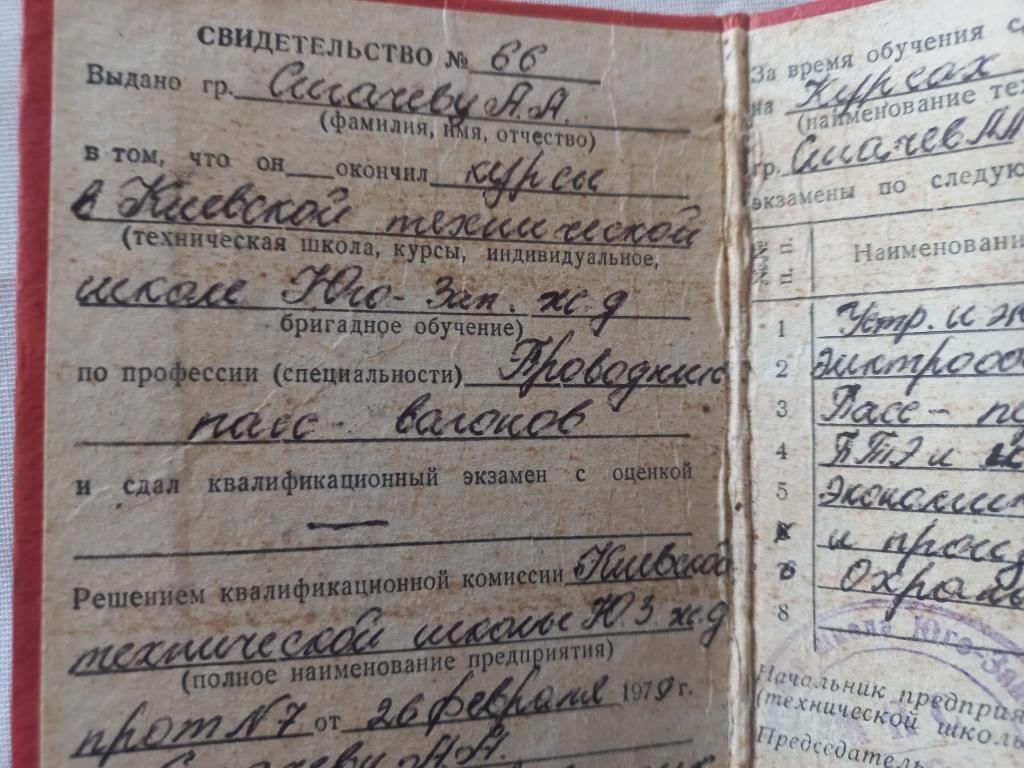 СВИДЕТЕЛЬСТВО № 66
Выдано гр. Смачеву А.А.
(фамилия, имя, отчество)
в том, что он окончил курсы
в Киевской технической
(техническая школа, курсы, индивидуальное,
школе Юго-Зап. ж.д
бригадное обучение)
по профессии (специальности) Проводник
пасс- вагонов
и сдал квалификационный экзамен с оценкой
—
Решением квалификационной комиссии Киевской
технической школы Ю.З ж.д
(полное наименование предприятия)
прот N7 от 26 февраля 197 г.
Смачеву А.А.
За время обучения с
на Курсах
(наименование тех
гр. Смачев АА
экзамены по следую
№№ п. п.
Наименовани
1 Устр. и
2 электрооб
3 Пасс-
4 ПТЭ и
5 Экономи
и
6 Охрана
8
школа Юго-Зап
Начальник предприя
(технической школы
Председатель